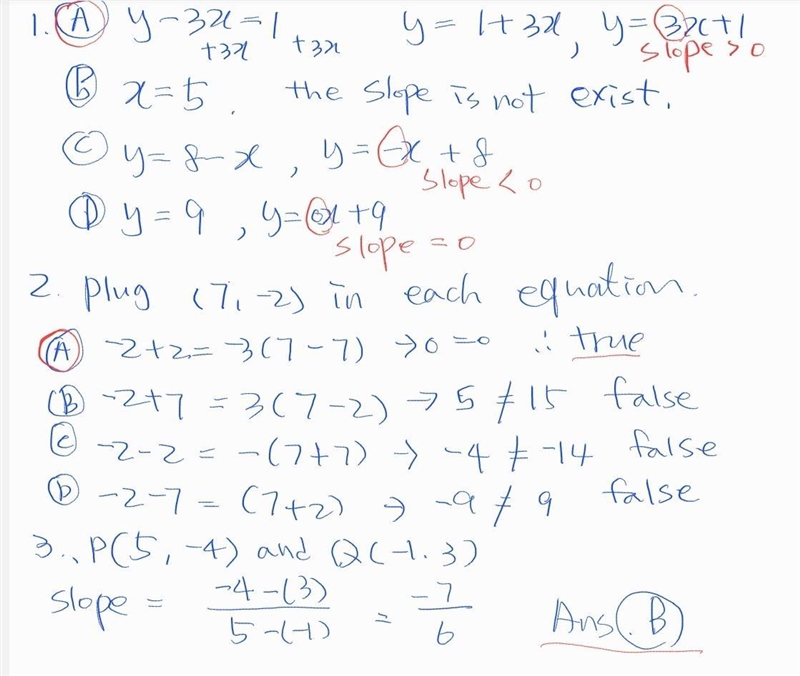 1. (A) y-3x=1 y=1+3x, y=3x+1
+3x +3x slope>0
(B) x=5. the slope is not exist.
(C) y=8-x, y=-x+8
slope<0
(D) y=9, y=0x+9
slope=0
2. plug (7,-2) in each equation.
(A) -2+2=-3(7-7) →0=0 ∴ true
(B) -2+7=3(7-2) → 5≠15 false
(C) -2-2=-(7+7) → -4≠-14 false
(D) -2-7=(7+2) → -9≠9 false
3., P(5,-4) and Q(-1.3)
slope = -4-(3) / 5-(-1) = -7/6 Ans(.B)